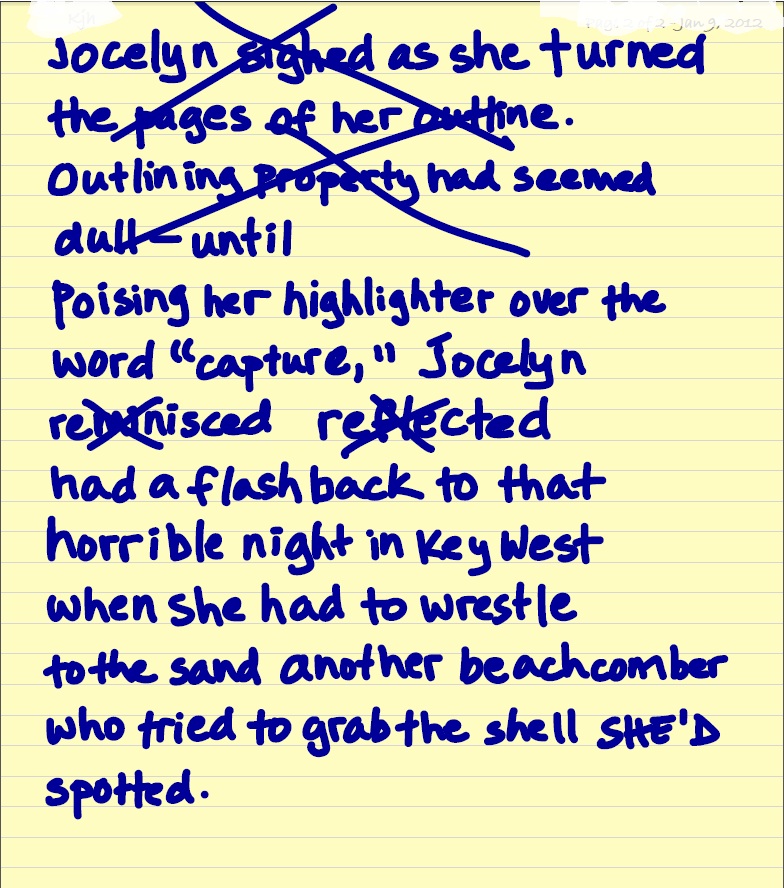 Kjh
Page 2 of 2 - Jan 9, 2012
Jocelyn sighed as she turned
the pages of her outline.
Outlining property had seemed
dull—until
Poising her highlighter over the
word "capture," Jocelyn
reminisced reflected
had a flashback to that
horrible night in Key West
when she had to wrestle
to the sand another beachcomber
who tried to grab the shell SHE'D
spotted.